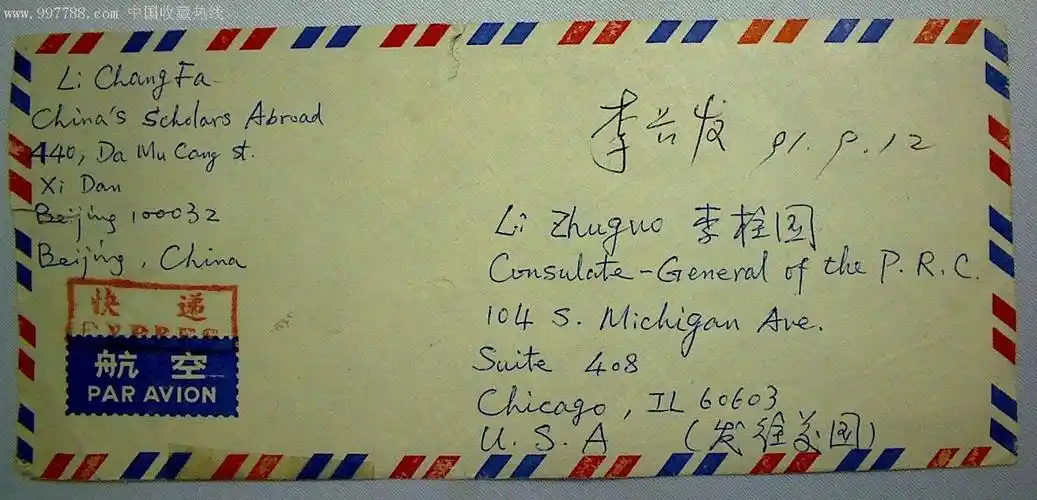 www.997788.com 中国收藏热线
Li Chang Fa
China's Scholars Abroad
440, Da Mu Cang st.
Xi Dan
Beijing 100032
Beijing, China
快 递
EXPRES
航 空
PAR AVION
李兴发 91.9.12
Li Zhuguo 李栓国
Consulate-General of the P.R.C.
104 S. Michigan Ave.
Suite 408
Chicago, IL 60603
U.S.A (发往美国)